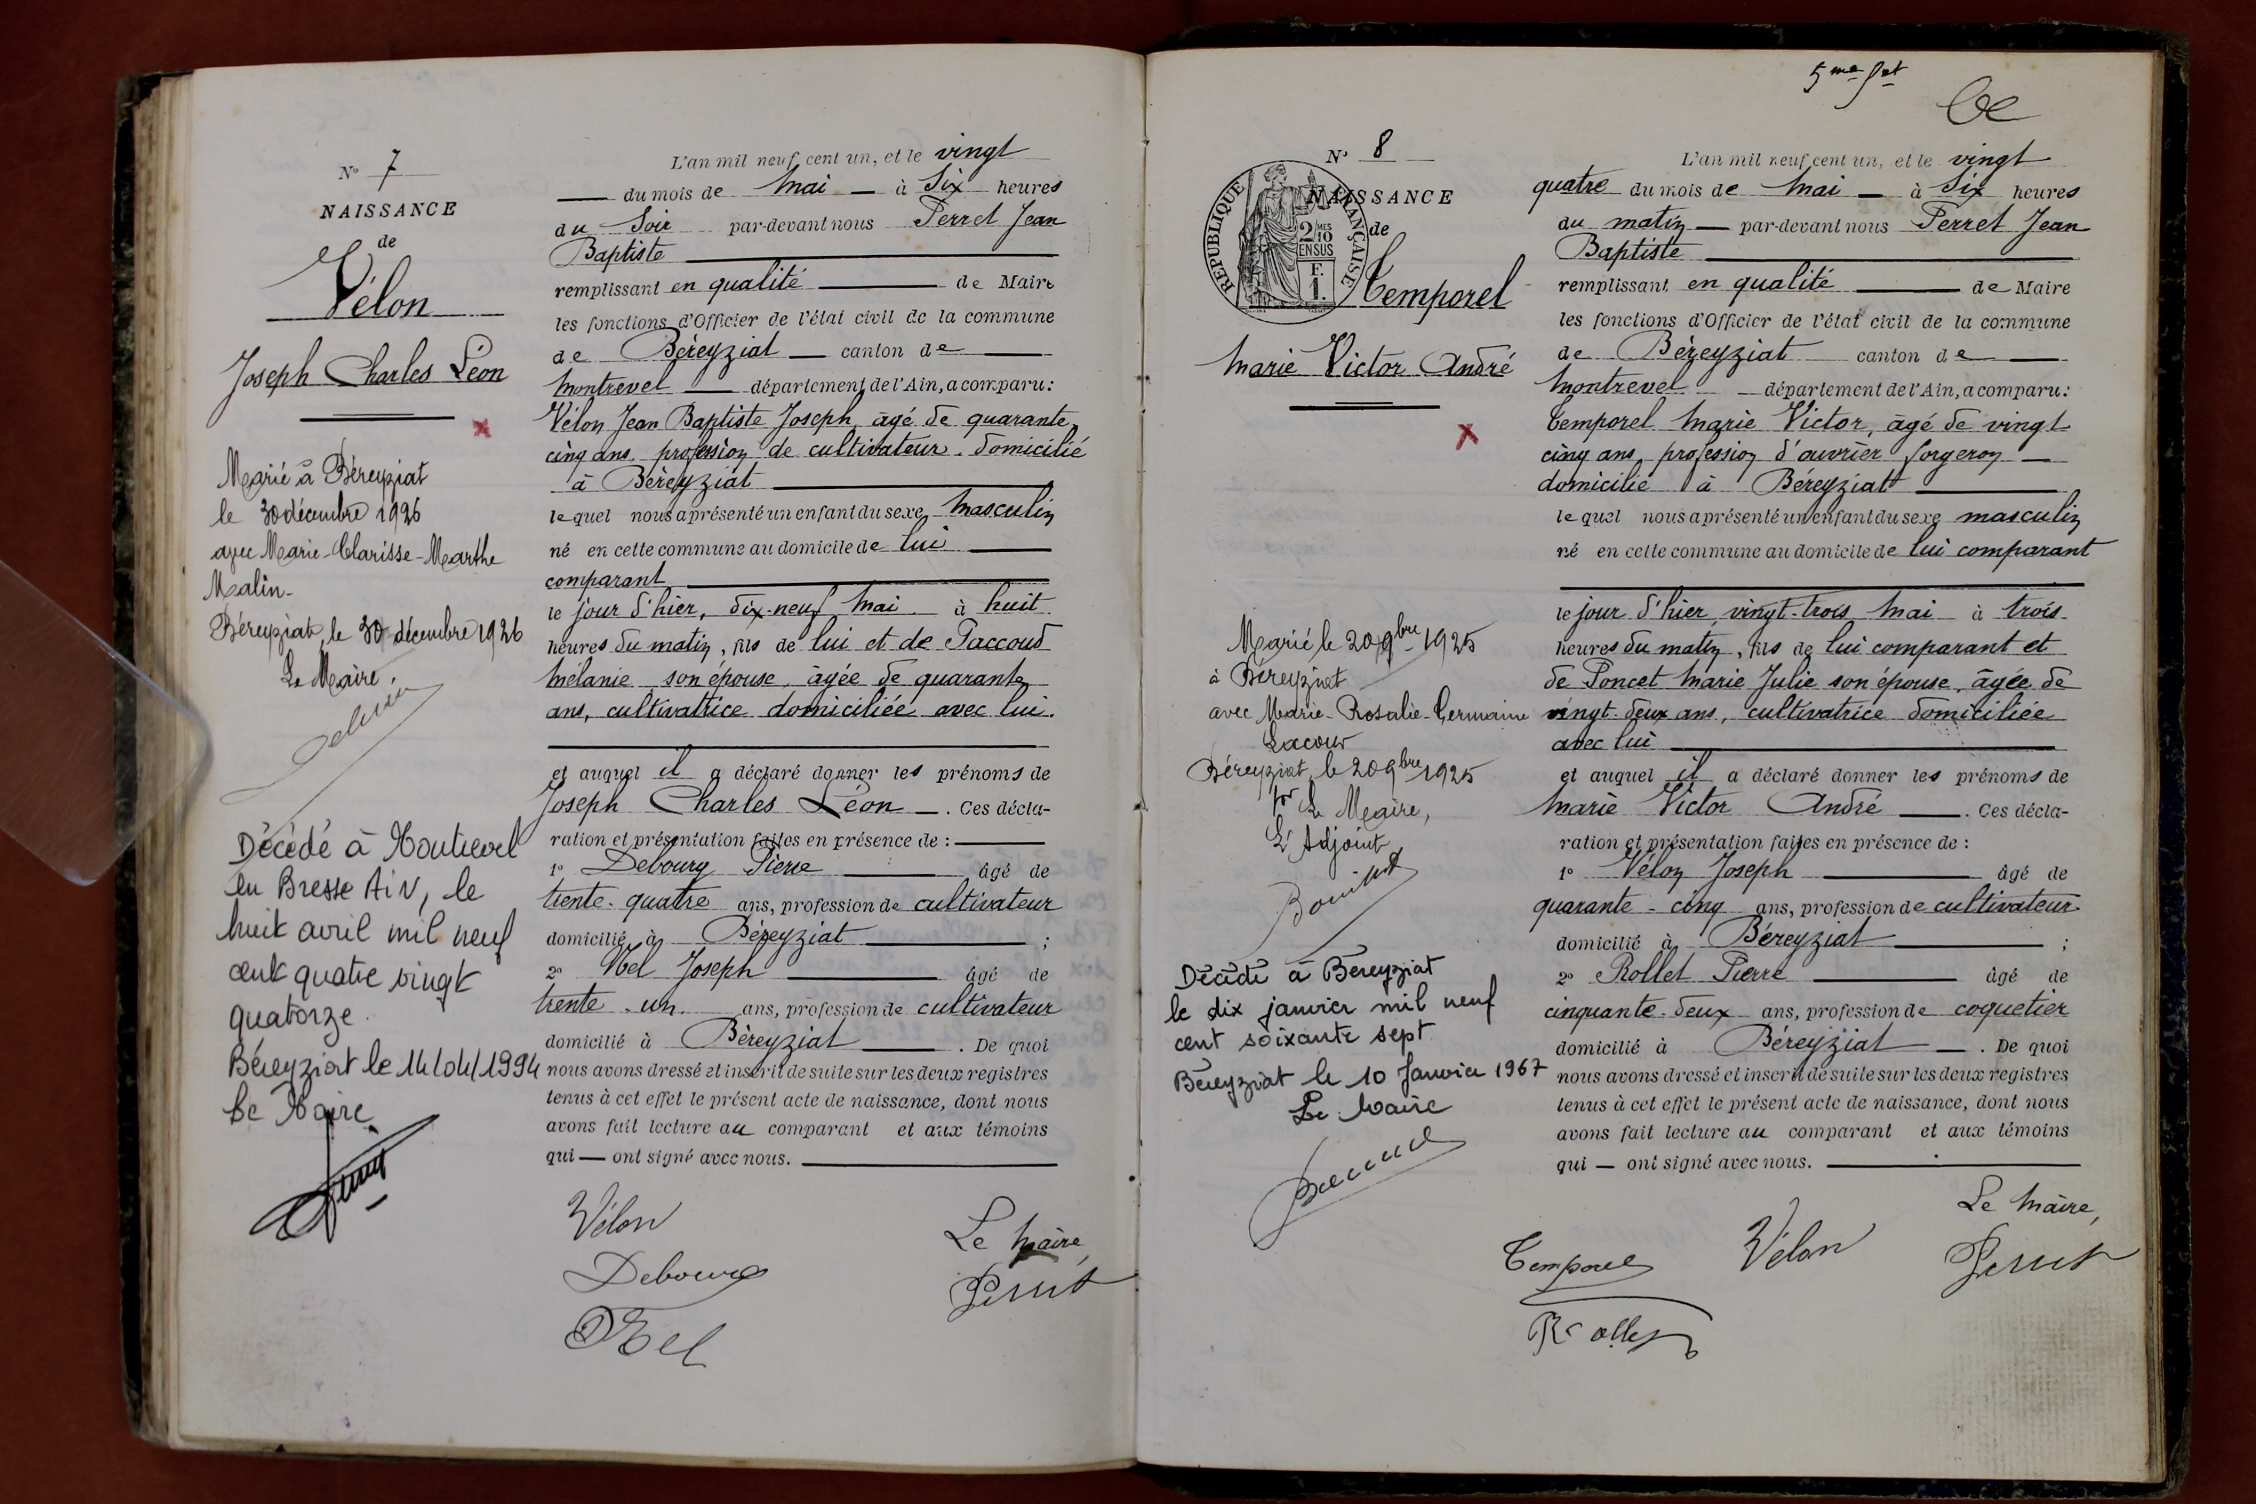 N° 7
NAISSANCE
de
Vélon
Joseph Charles Léon
Marié à Béreyziat
le 30 décembre 1926
avec Marie-Clarisse-Marthe
Malin-
Béreyziat, le 30 décembre 1926
Le Maire,
Décédé à Montrevel
en Bresse Ain, le
huit avril mil neuf
cent quatre vingt
quatorze.
Béreyziat le 14/04/1994
Le Maire
L'an mil neuf cent un, et le vingt
du mois de Mai à Six heures
du Soir par-devant nous Perret Jean
Baptiste
remplissant en qualité de Maire
les fonctions d'Officier de l'état civil de la commune
de Béreyziat canton de
Montrevel département de l'Ain, a comparu:
Vélon Jean Baptiste Joseph, âgé de quarante
cinq ans, profession de cultivateur, domicilié
à Béreyziat
lequel nous a présenté un enfant du sexe masculin
né en cette commune au domicile de lui
comparant
le jour d'hier, dix-neuf Mai à huit
heures du matin, fils de lui et de Paccoud
Mélanie son épouse, âgée de quarante
ans, cultivatrice domiciliée avec lui.
et auquel il a déclaré donner les prénoms de
Joseph Charles Léon . Ces décla-
ration et présentation faites en présence de :
1° Debourg Pierre âgé de
trente-quatre ans, profession de cultivateur
domicilié à Béreyziat ;
2° Nel Joseph âgé de
trente-un ans, profession de cultivateur
domicilié à Béreyziat . De quoi
nous avons dressé et inscrit de suite sur les deux registres
tenus à cet effet le présent acte de naissance, dont nous
avons fait lecture au comparant et aux témoins
qui — ont signé avec nous.
Vélon
Le Maire,
Debourg
Perret
Nel
5me fet
N° 8
NAISSANCE
de
REPUBLIQUE FRANÇAISE
2 MES
10
EN SUS
F.
1.
Temporel
Marie Victor André
Marié le 20 9bre 1925
à Béreyziat
avec Marie-Rosalie-Germaine
Lacour
Béreyziat, le 20 9bre 1925
pr Le Maire,
L'Adjoint
Décédé à Béreyziat
le dix janvier mil neuf
cent soixante sept
Béreyziat le 10 Janvier 1967
Le Maire
L'an mil neuf cent un, et le vingt
quatre du mois de Mai à Six heures
du matin par-devant nous Perret Jean
Baptiste
remplissant en qualité de Maire
les fonctions d'Officier de l'état civil de la commune
de Béreyziat canton de
Montrevel département de l'Ain, a comparu:
Temporel Marie Victor, âgé de vingt
cinq ans, profession d'ouvrier forgeron
domicilié à Béreyziat
lequel nous a présenté un enfant du sexe masculin
né en cette commune au domicile de lui comparant
le jour d'hier, vingt-trois Mai à trois
heures du matin, fils de lui comparant et
de Poncet Marie Julie son épouse, âgée de
vingt-deux ans, cultivatrice domiciliée
avec lui
et auquel il a déclaré donner les prénoms de
Marie Victor André . Ces décla-
ration et présentation faites en présence de :
1° Vélon Joseph âgé de
quarante-cinq ans, profession de cultivateur
domicilié à Béreyziat ;
2° Rollet Pierre âgé de
cinquante-deux ans, profession de coquetier
domicilié à Béreyziat . De quoi
nous avons dressé et inscrit de suite sur les deux registres
tenus à cet effet le présent acte de naissance, dont nous
avons fait lecture au comparant et aux témoins
qui — ont signé avec nous.
Le Maire,
Temporel Vélon Perret
Rollet